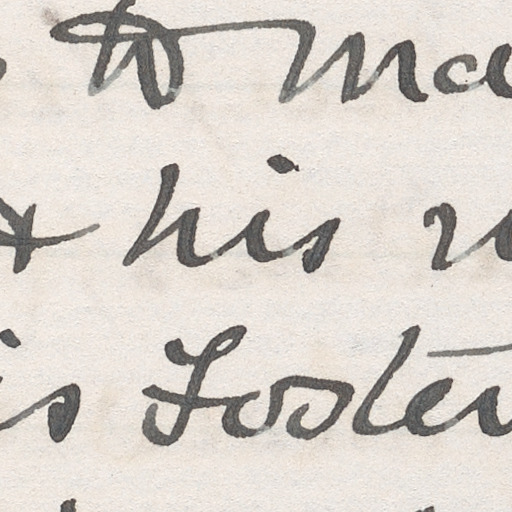 to ma
& his
is Foster